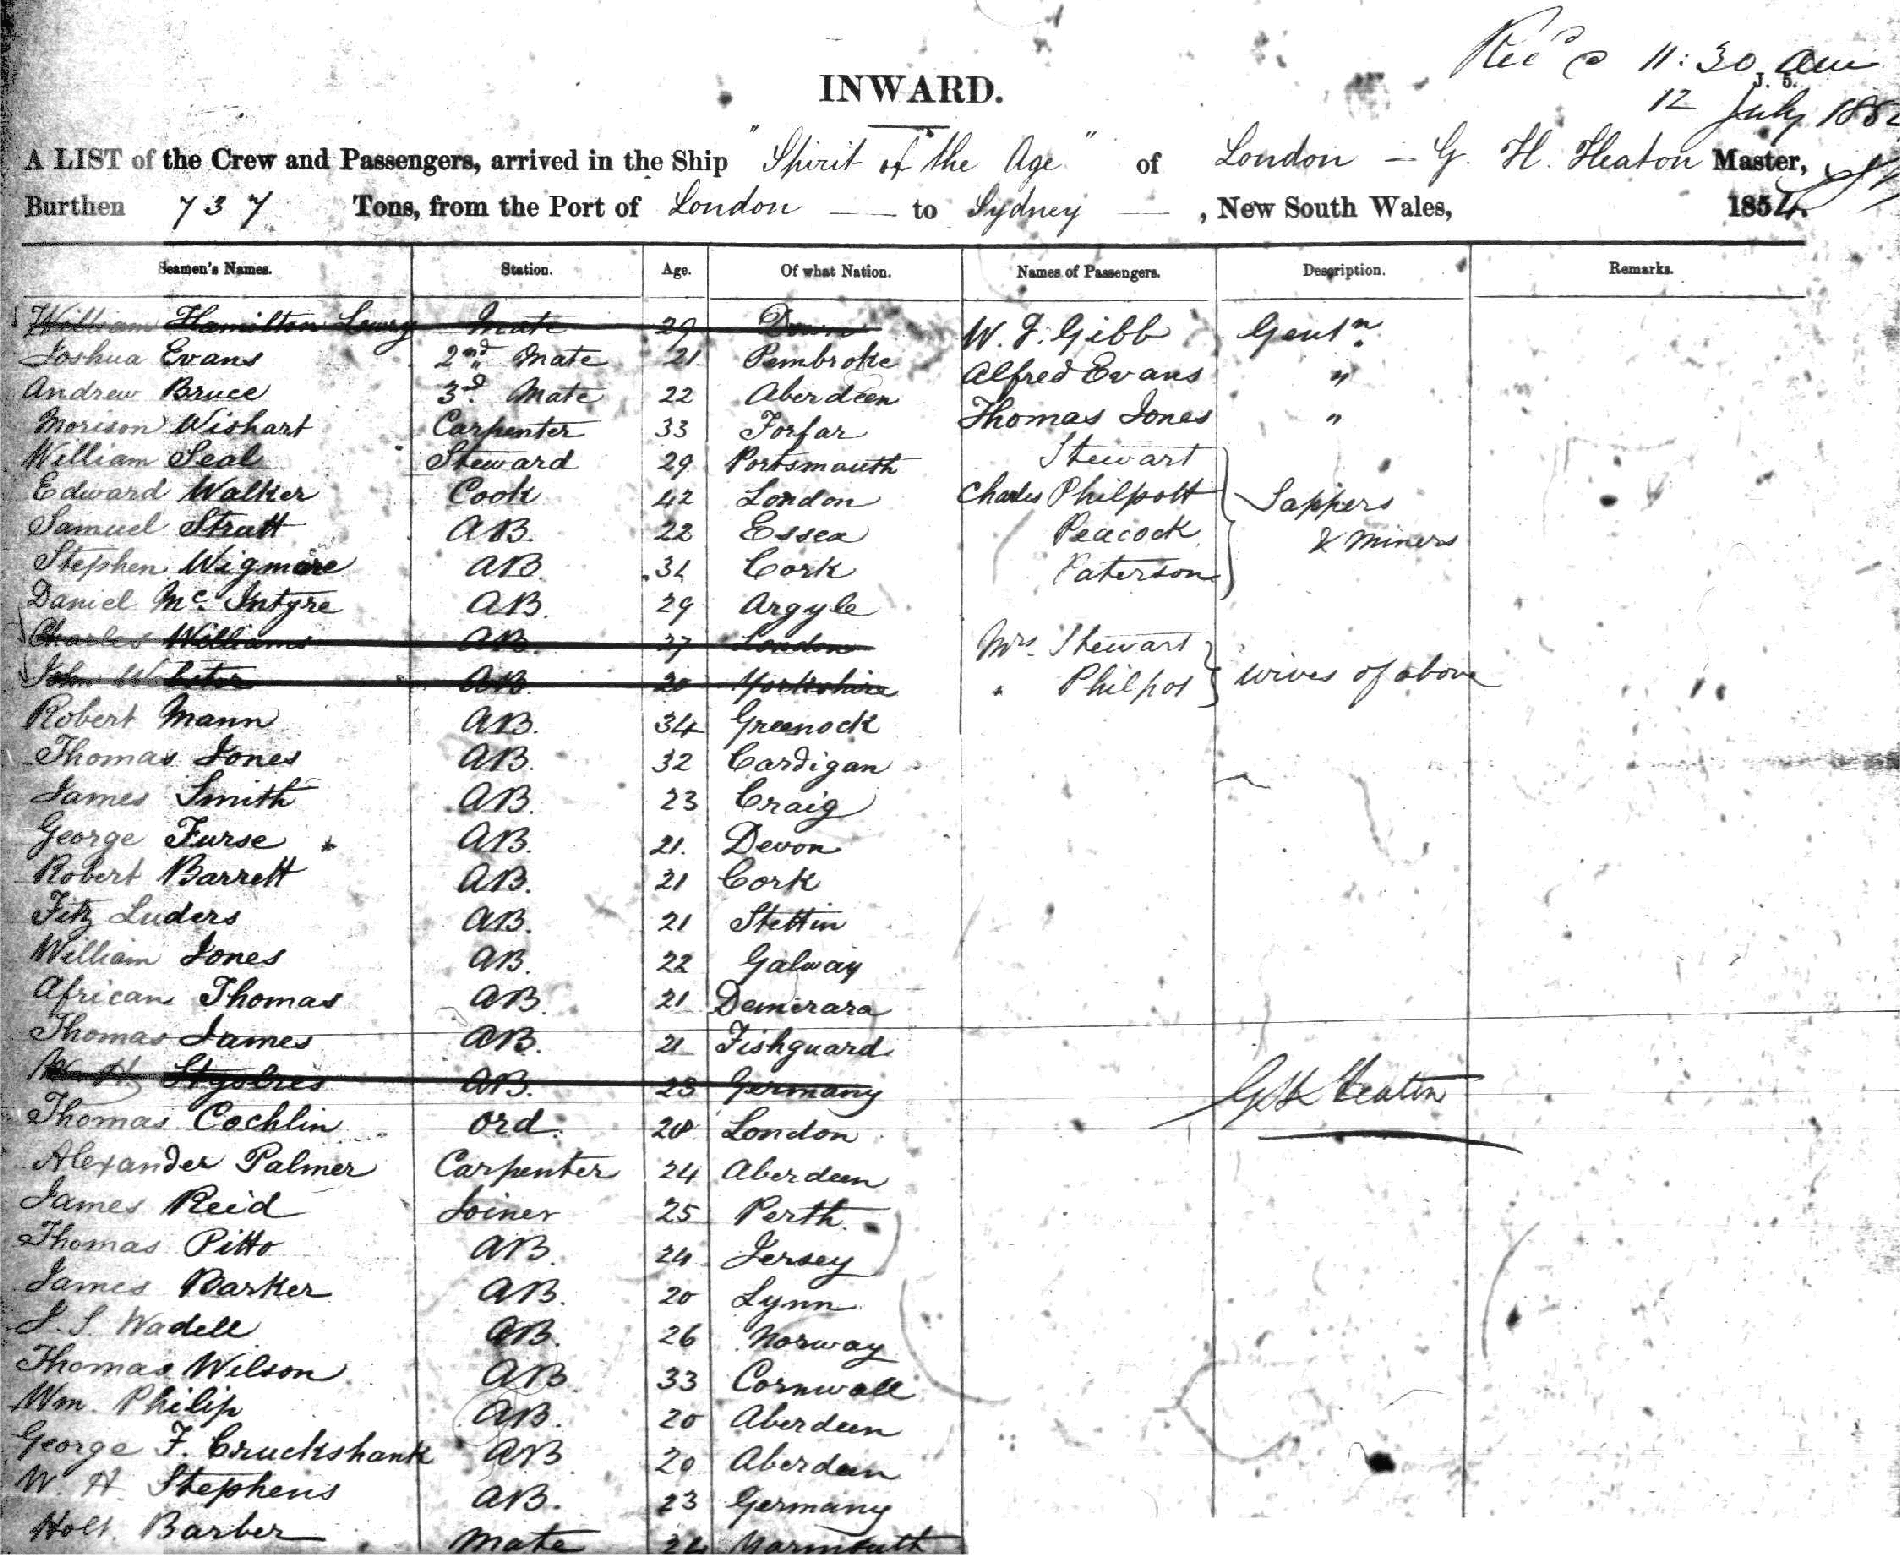 Rec'd @ 11:30 am
J. 5.
12 July 185
INWARD.
A LIST of the Crew and Passengers, arrived in the Ship "Spirit of the Age" of London — G. H. Heaton Master,
Burthen 737 Tons, from the Port of London — to Sydney — , New South Wales, 1854.
Seamen's Names. Station. Age. Of what Nation. Names of Passengers. Description. Remarks.
William Hamilton Lowry Mate 29 Down W. J. Gibb Gentn.
Joshua Evans 2nd Mate 21 Pembroke Alfred Evans "
Andrew Bruce 3d. Mate 22 Aberdeen Thomas Jones "
Morison Wishart Carpenter 33 Forfar Stewart
William Seal Steward 29 Portsmouth
Edward Walker Cook 42 London Charles Philpott Sappers
Samuel Strutt AB. 22 Essex Peacock & Miners
Stephen Wigmore AB 31 Cork Paterson
Daniel Mc. Intyre AB. 29 Argyle
Charles Williams AB. 27 London Mrs. Stewart
John AB. 20 Yorkshire " Philpot wives of above
Robert Mann AB. 34 Greenock
Thomas Jones AB. 32 Cardigan
James Smith AB. 23 Craig
George Furse AB. 21. Devon
Robert Barrett AB. 21 Cork
Fitz Luders AB. 21 Stettin
William Jones AB. 22 Galway
African Thomas AB. 21 Demerara
Thomas James AB. 21 Fishguard
AB. 23 Germany GH Heaton
Thomas Cochlin ord. 20 London
Alexander Palmer Carpenter 24 Aberdeen
James Reid Joiner 25 Perth
Thomas Pitto AB. 24 Jersey
James Barker AB. 20 Lynn
J. S. Wadell AB. 26 Norway
Thomas Wilson AB 33 Cornwall
Wm. Philip AB. 20 Aberdeen
George F. Cruckshank AB 20 Aberdeen
W. H. Stephens AB. 23 Germany
Holt. Barber Mate 24 Yarmouth